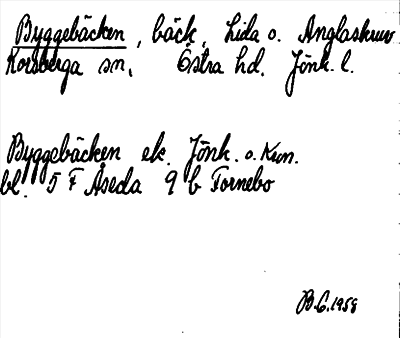 Byggebäcken, bäck, Lida o. Anglaskruv
Korsberga sn. Östra hd. Jönk. l.
Byggebäcken ek. Jönk. o. Kron.
bl. 5 F Åseda 9 b Tornebo
B.C. 1958